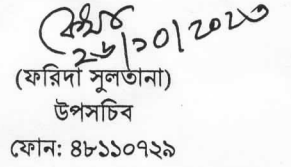 ২৬/১০/২০২৩
(ফরিদা সুলতানা)
উপসচিব
ফোন: ৪৮১১০৭২৯